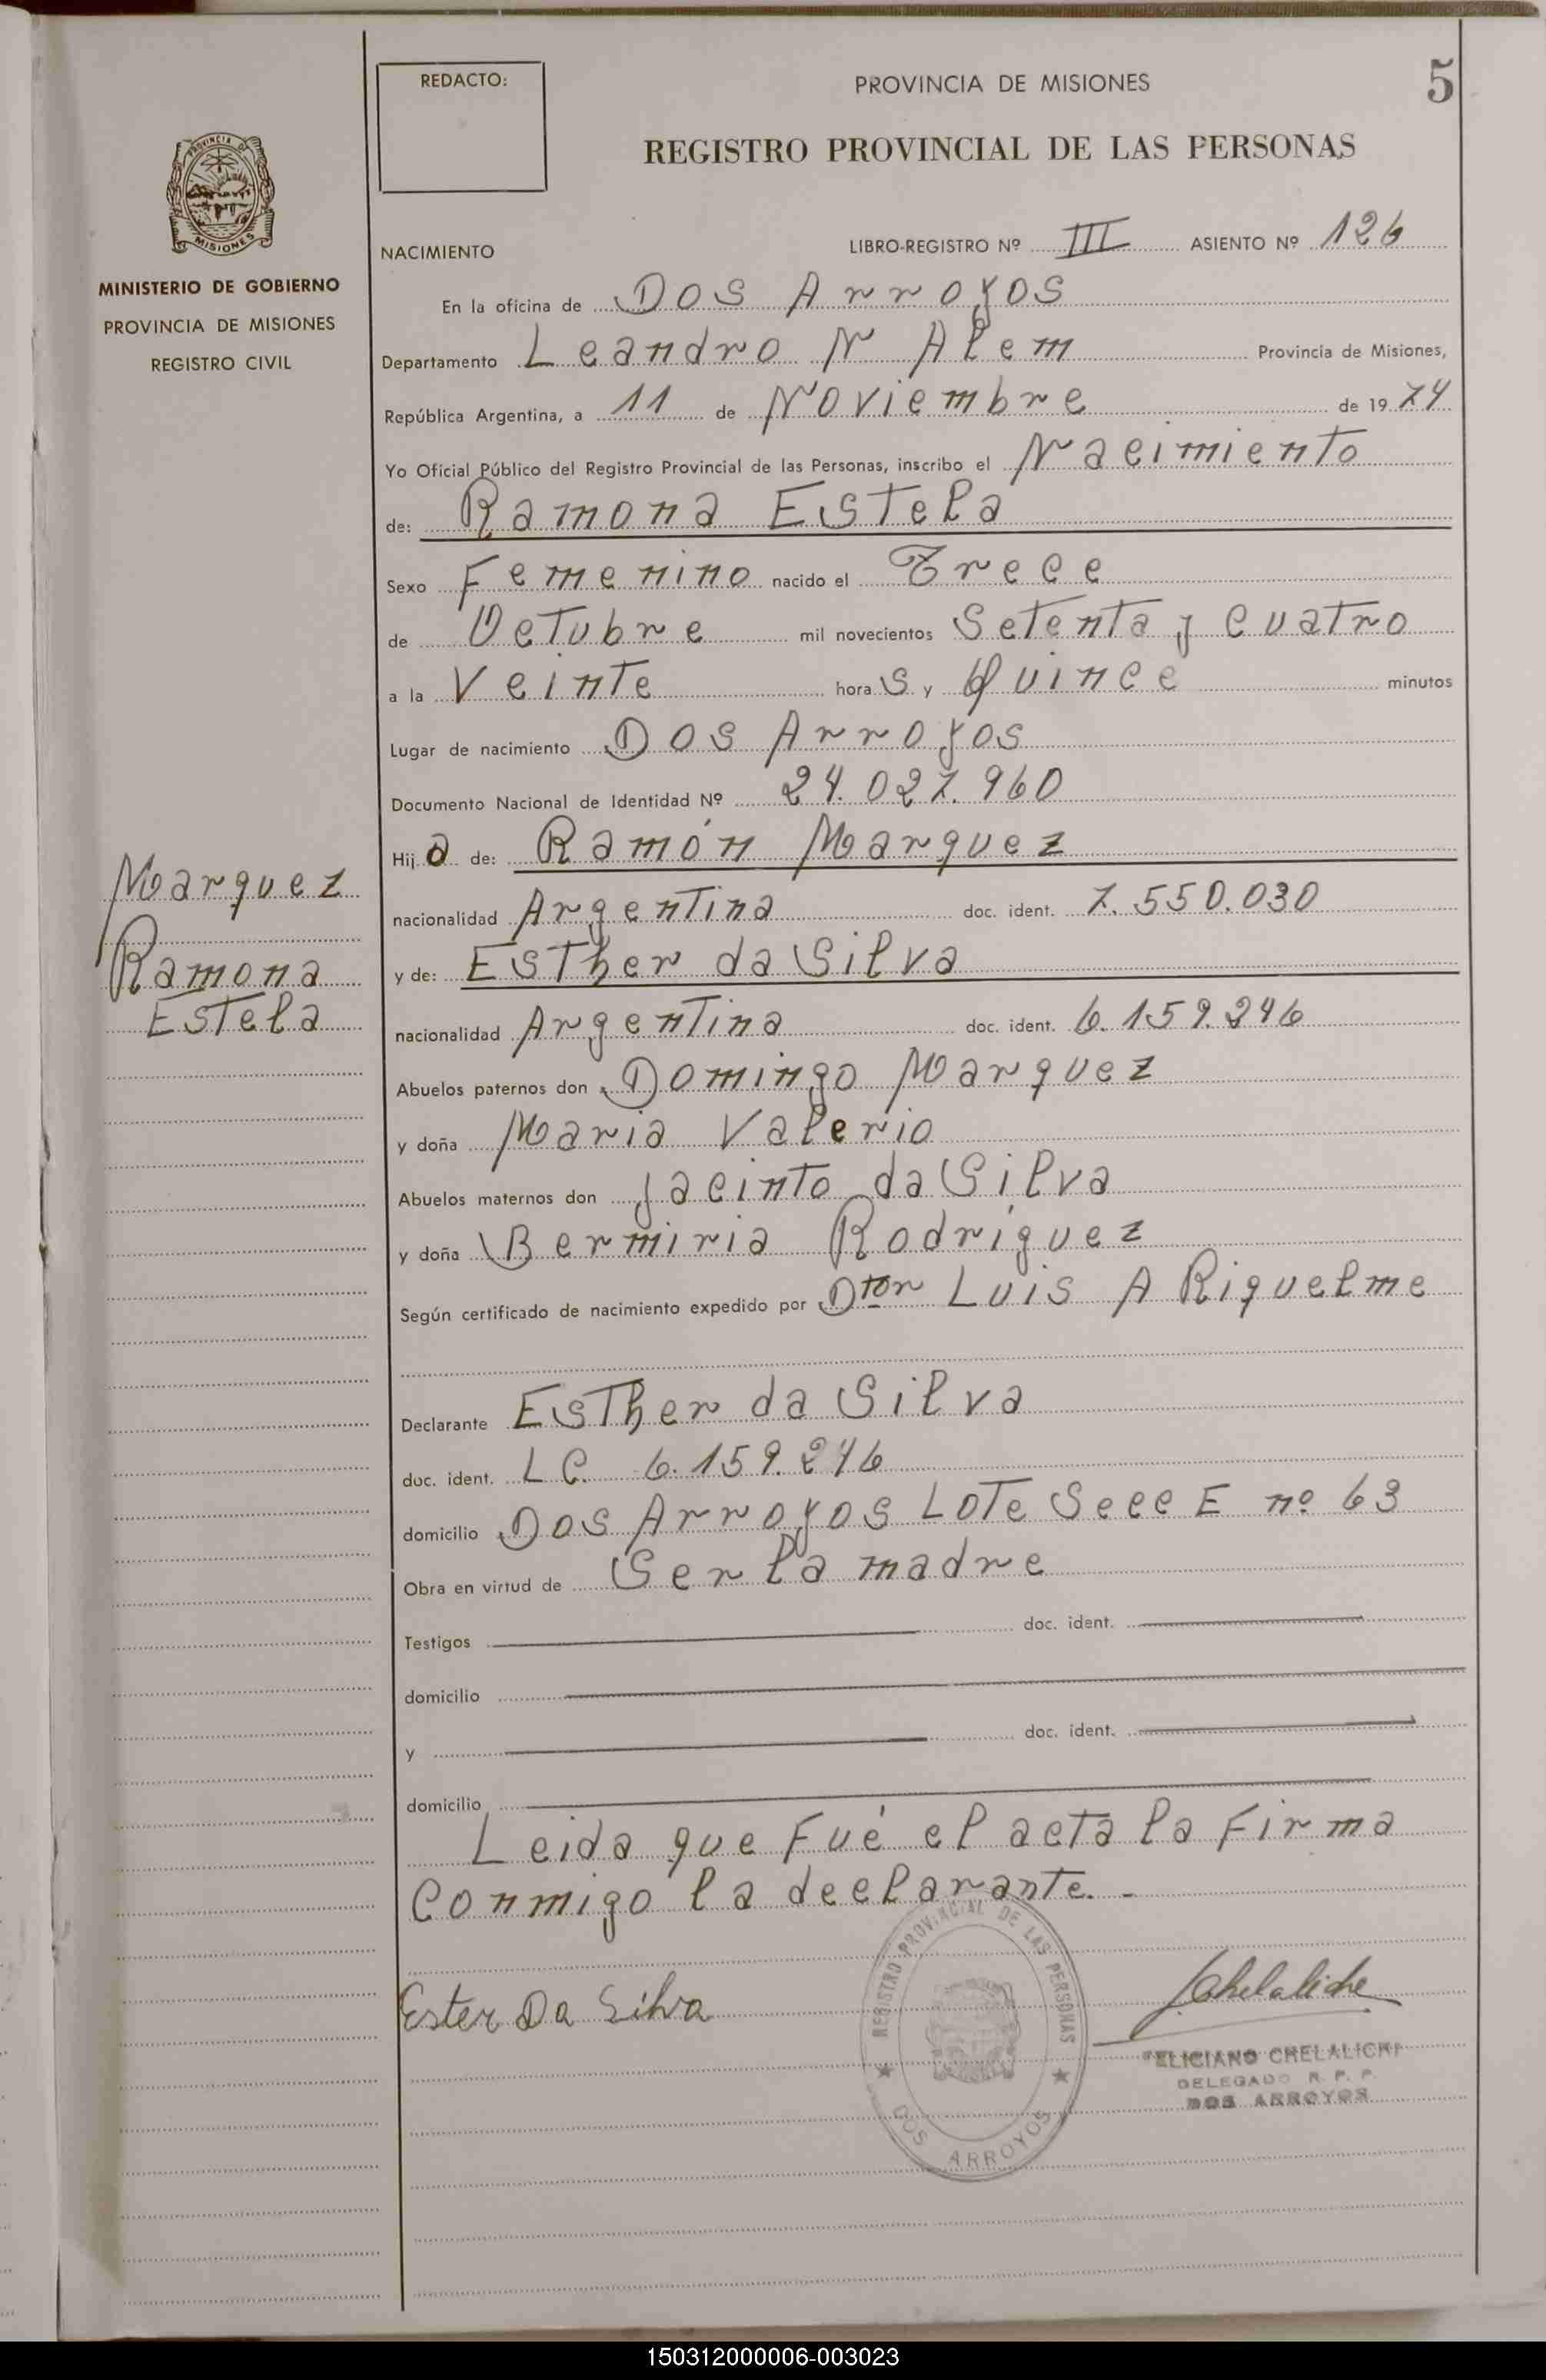 REDACTO:
PROVINCIA DE MISIONES
5
REGISTRO PROVINCIAL DE LAS PERSONAS
PROVINCIA DE
MISIONES
MINISTERIO DE GOBIERNO
PROVINCIA DE MISIONES
REGISTRO CIVIL
NACIMIENTO
LIBRO-REGISTRO Nº III ASIENTO Nº 126
En la oficina de Dos Arroyos
Departamento Leandro N Alem Provincia de Misiones,
República Argentina, a 11 de Noviembre de 1974
Yo Oficial Público del Registro Provincial de las Personas, inscribo el Nacimiento
de: Ramona Estela
Sexo Femenino nacido el Trece
de Octubre mil novecientos Setenta y Cuatro
a la Veinte hora s y Quince minutos
Lugar de nacimiento Dos Arroyos
Documento Nacional de Identidad Nº 24.027.960
Hij a de: Ramón Marquez
nacionalidad Argentina doc. ident. 7.550.030
y de: Esther da Silva
nacionalidad Argentina doc. ident. 6.159.246
Marquez
Ramona
Estela
Abuelos paternos don Domingo Marquez
y doña Maria Valerio
Abuelos maternos don Jacinto da Silva
y doña Bermiria Rodríguez
Según certificado de nacimiento expedido por Dtor Luis A Riquelme
Declarante Esther da Silva
doc. ident. L C. 6.159.246
domicilio Dos Arroyos Lote Secc E nº 63
Obra en virtud de Ser la madre
Testigos doc. ident.
domicilio
y doc. ident.
domicilio
Leida que Fué el acta la Firma
Conmigo la declarante. -
Ester Da Silva
Chelaliche
REGISTRO PROVINCIAL DE LAS PERSONAS
DOS ARROYOS
FELICIANO CHELALICHE
DELEGADO R. P. P.
DOS ARROYOS
150312000006-003023